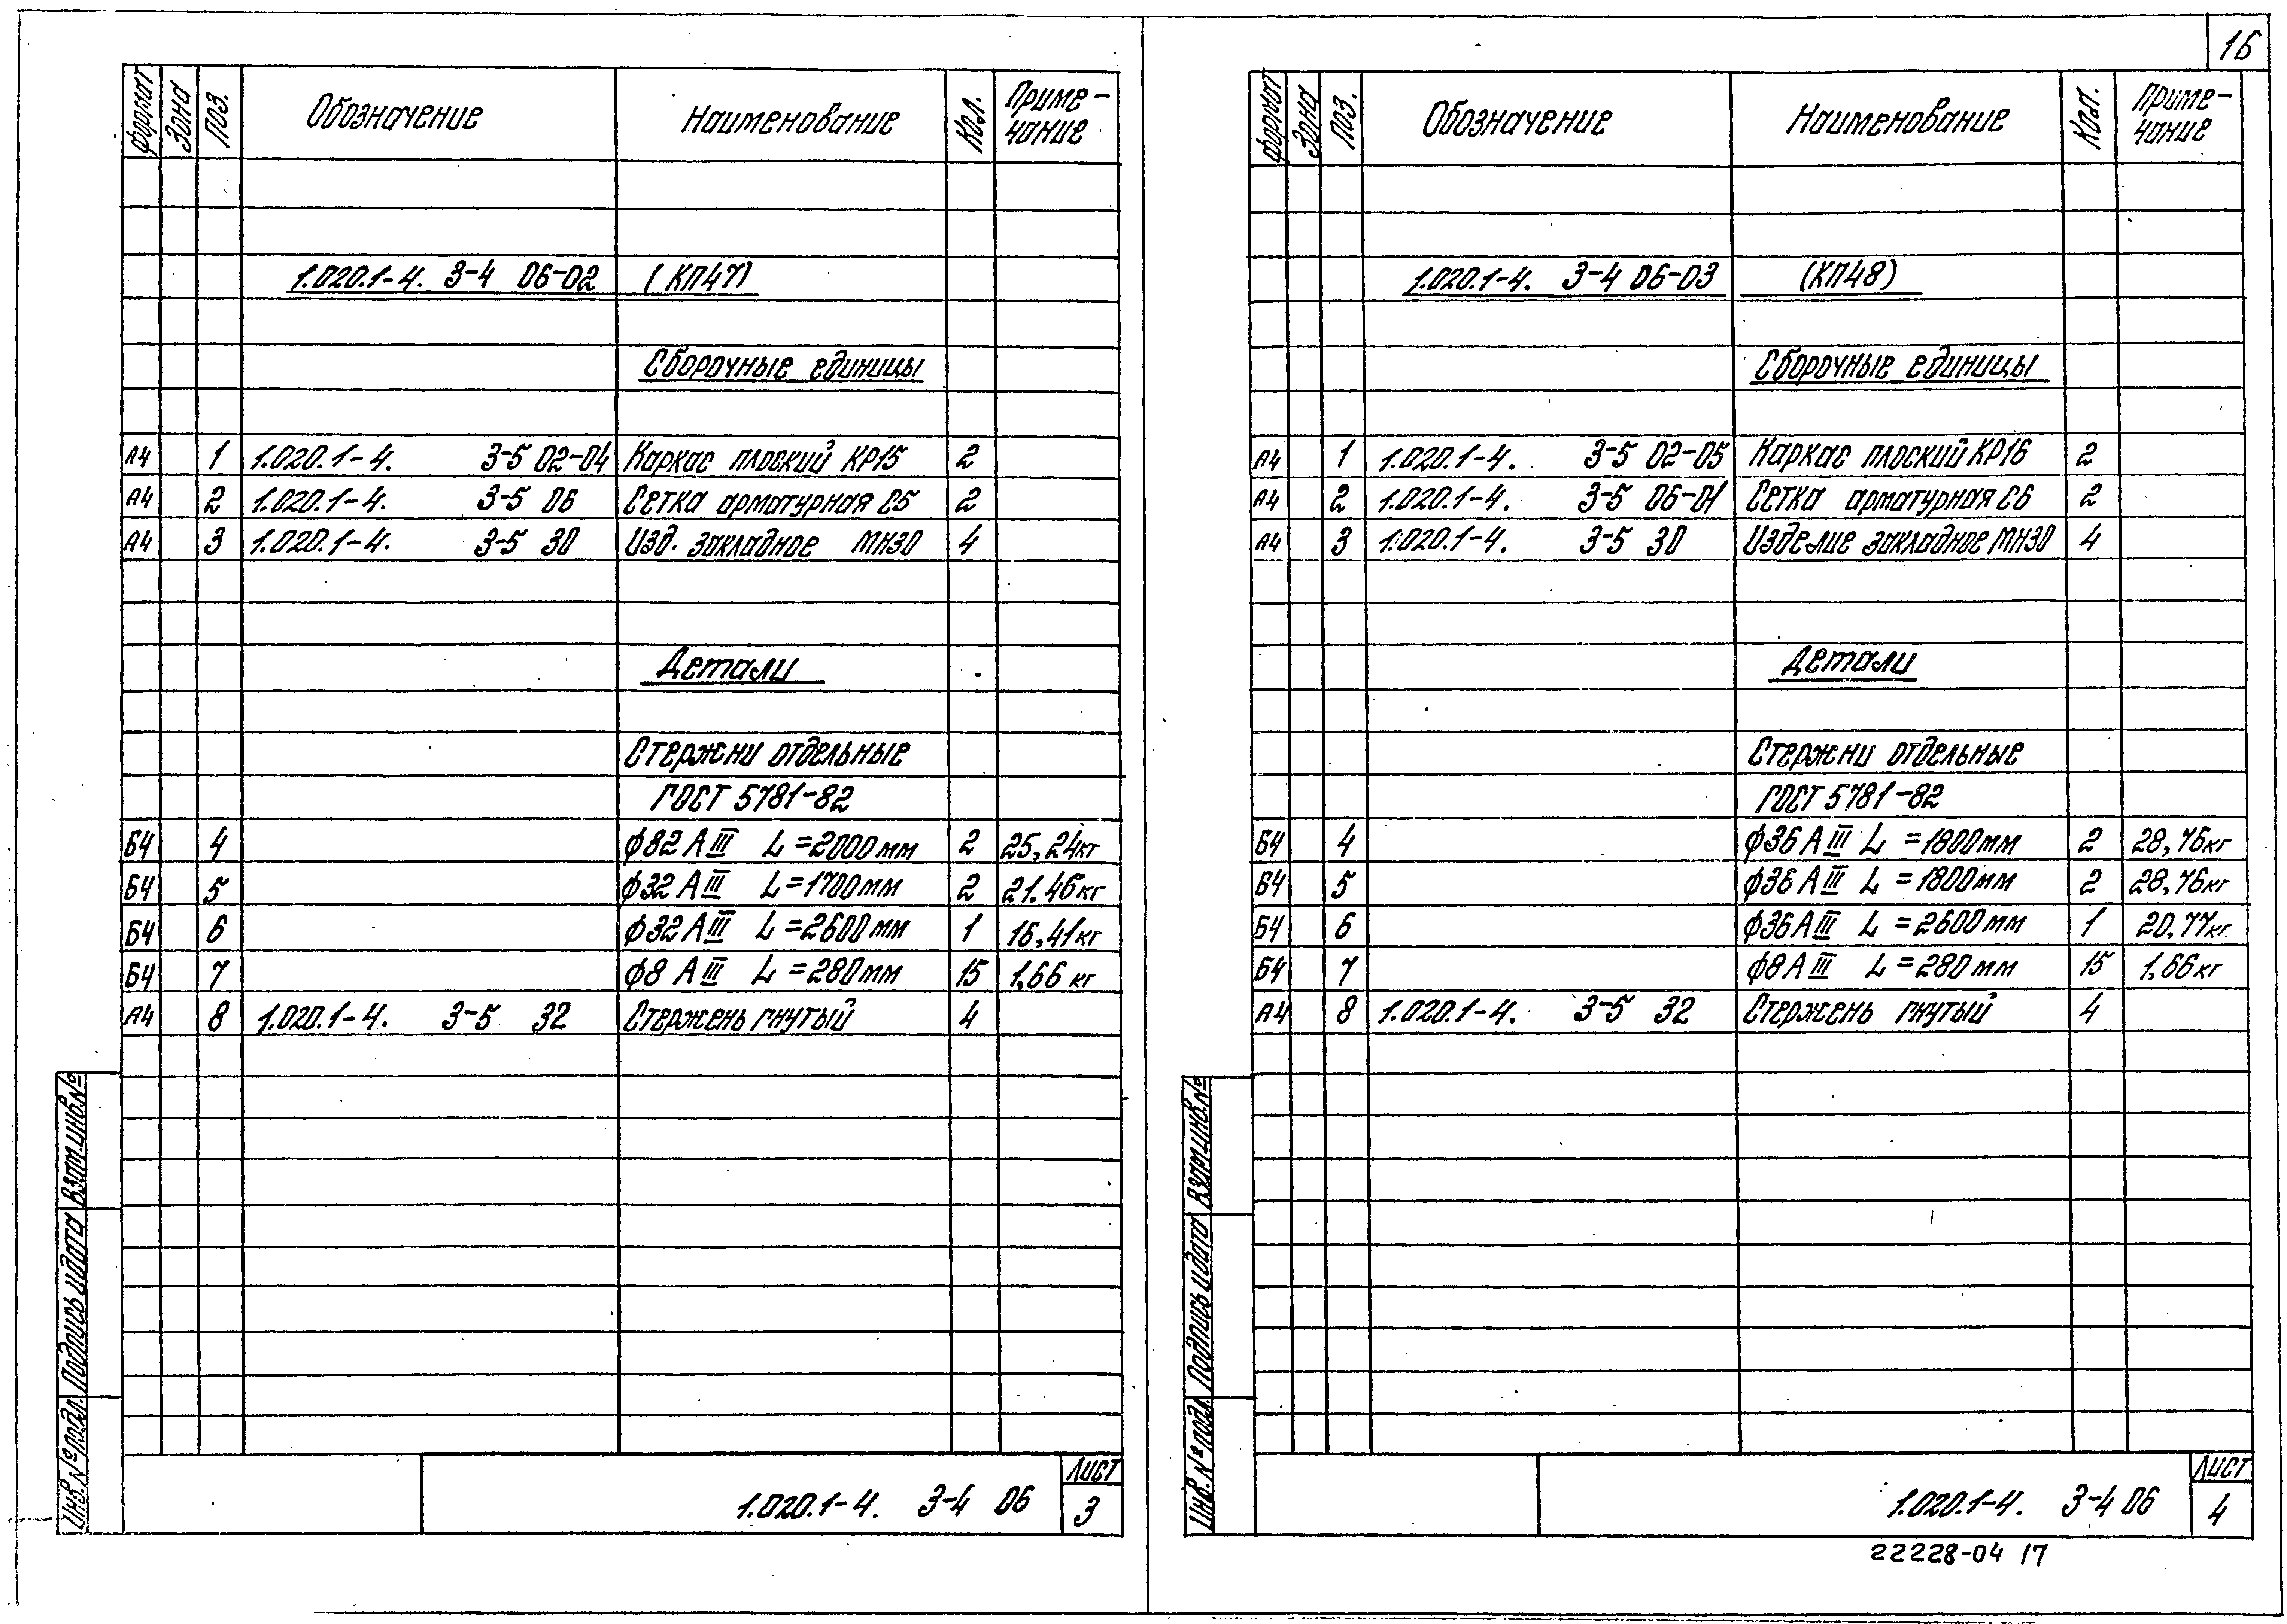 16
Формат Зона Поз. Обозначение Наименование Кол. Приме-чание
1.020.1-4. 3-4 06-02 (КП47)
Сборочные единицы
А4 1 1.020.1-4. 3-5 02-04 Каркас плоский КР15 2
А4 2 1.020.1-4. 3-5 06 Сетка арматурная С5 2
А4 3 1.020.1-4. 3-5 30 Изд. закладное МН30 4
Детали
Стержни отдельные
ГОСТ 5781-82
Б4 4 ф32 АIII L=2000мм 2 25,24кг
Б4 5 ф32 АIII L=1700мм 2 21.46кг
Б4 6 ф32 АIII L=2600мм 1 16,41кг
Б4 7 ф8 АIII L=280мм 15 1,66 кг
А4 8 1.020.1-4. 3-5 32 Стержень гнутый 4
Инв.№подл. Подпись и дата Взам.инв.№
1.020.1-4. 3-4 06
Лист
3
Формат Зона Поз. Обозначение Наименование Кол. Приме-чание
1.020.1-4. 3-4 06-03 (КП48)
Сборочные единицы
А4 1 1.020.1-4. 3-5 02-05 Каркас плоский КР16 2
А4 2 1.020.1-4. 3-5 06-01 Сетка арматурная С6 2
А4 3 1.020.1-4. 3-5 30 Изделие закладное МН30 4
Детали
Стержни отдельные
ГОСТ 5781-82
Б4 4 ф36 АIII L=1800мм 2 28,76кг
Б4 5 ф36 АIII L=1800мм 2 28,76кг
Б4 6 ф36 АIII L=2600мм 1 20,77кг
Б4 7 ф8 АIII L=280мм 15 1,66кг
А4 8 1.020.1-4. 3-5 32 Стержень гнутый 4
Инв.№подл. Подпись и дата Взам.инв.№
1.020.1-4. 3-4 06
Лист
4
22228-04 17